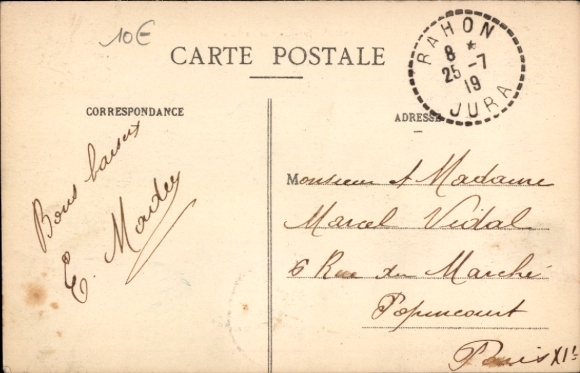 10€
CARTE POSTALE
RAHON
8 *
25 -7
19
JURA
CORRESPONDANCE
ADRESSE
Bons baisers
E. Madey
Monsieur et Madame
Marcel Vidal
6 Rue du Marché
Popincourt
Paris XIe